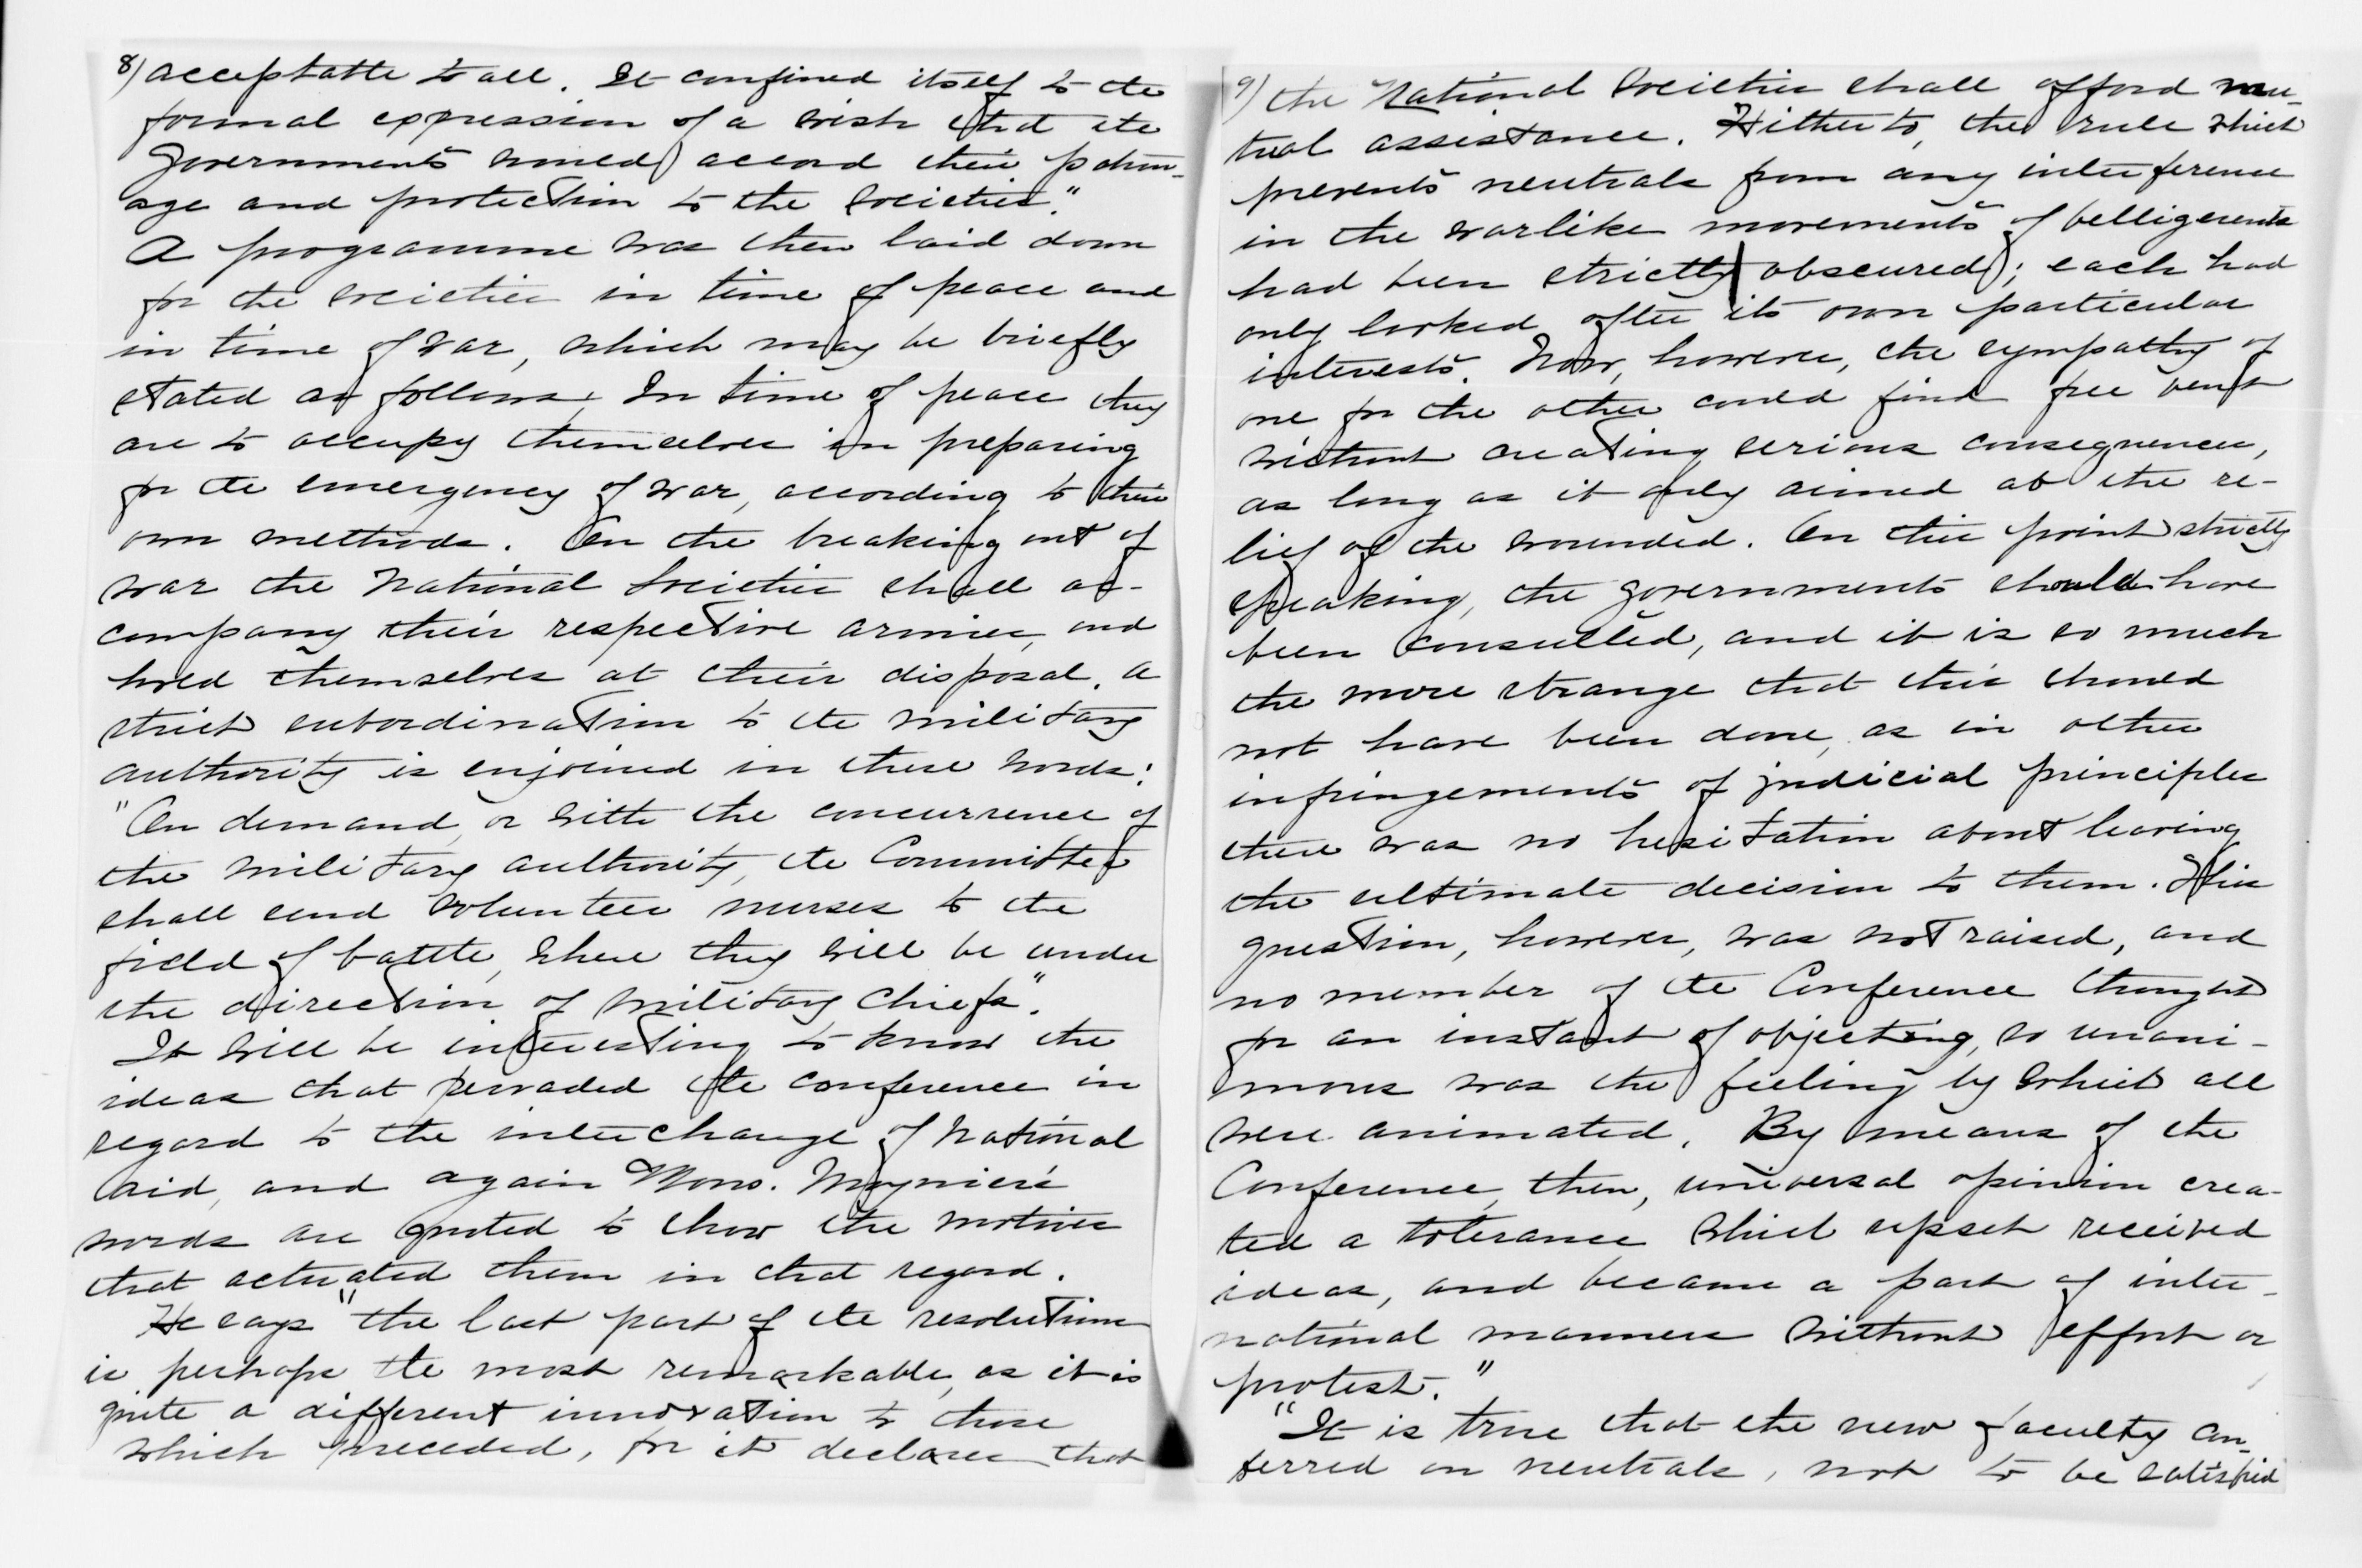 8) acceptable to all. It confined itself to the
formal expression of a wish that the
Governments would accord their patron-
age and protection to the societies."
A programme was then laid down
for the societies in time of peace and
in time of war, which may be briefly
stated as follows. In time of peace they
are to occupy themselves in preparing
for the emergency of war, according to their
own methods. On the breaking out of
war the National Societies shall ac-
company their respective armies, and
hold themselves at their disposal. A
strict subordination to the military
authority is enjoined in these words:
"On demand, or with the concurrence of
the military authority, the Committee
shall send volunteer nurses to the
field of battle, where they will be under
the direction of military Chiefs".
It will be interesting to know the
ideas that pervaded the conference in
regard to the interchange of National
aid, and again Mons. Moynier's
words are quoted to show the motives
that actuated them in that regard.
He says "the last part of the resolutions
is perhaps the most remarkable, as it is
quite a different innovation to those
which preceded, for it declares that
9) the National Societies shall afford mu-
tual assistance. Hitherto, the rule which
prevents neutrals from any interference
in the warlike movements of belligerents
had been strictly obscured; each had
only looked after its own particular
interests. Now, however, the sympathy of
one for the other could find free vent
without creating serious consequences,
as long as it only aimed at the re-
lief of the wounded. On this point strictly
speaking, the governments should have
been consulted, and it is so much
the more strange that this should
not have been done, as in other
infringements of judicial principles
there was no hesitation about leaving
the ultimate decision to them. This
question, however, was not raised, and
no member of the Conference thought
for an instant of objecting, so unani-
mous was the feeling by which all
were animated. By means of the
Conference, then, universal opinion crea-
ted a tolerance which upset received
ideas, and became a part of inter-
national manners without effort or
protest."
"It is true that the new faculty con-
ferred on neutrals, not to be satisfied